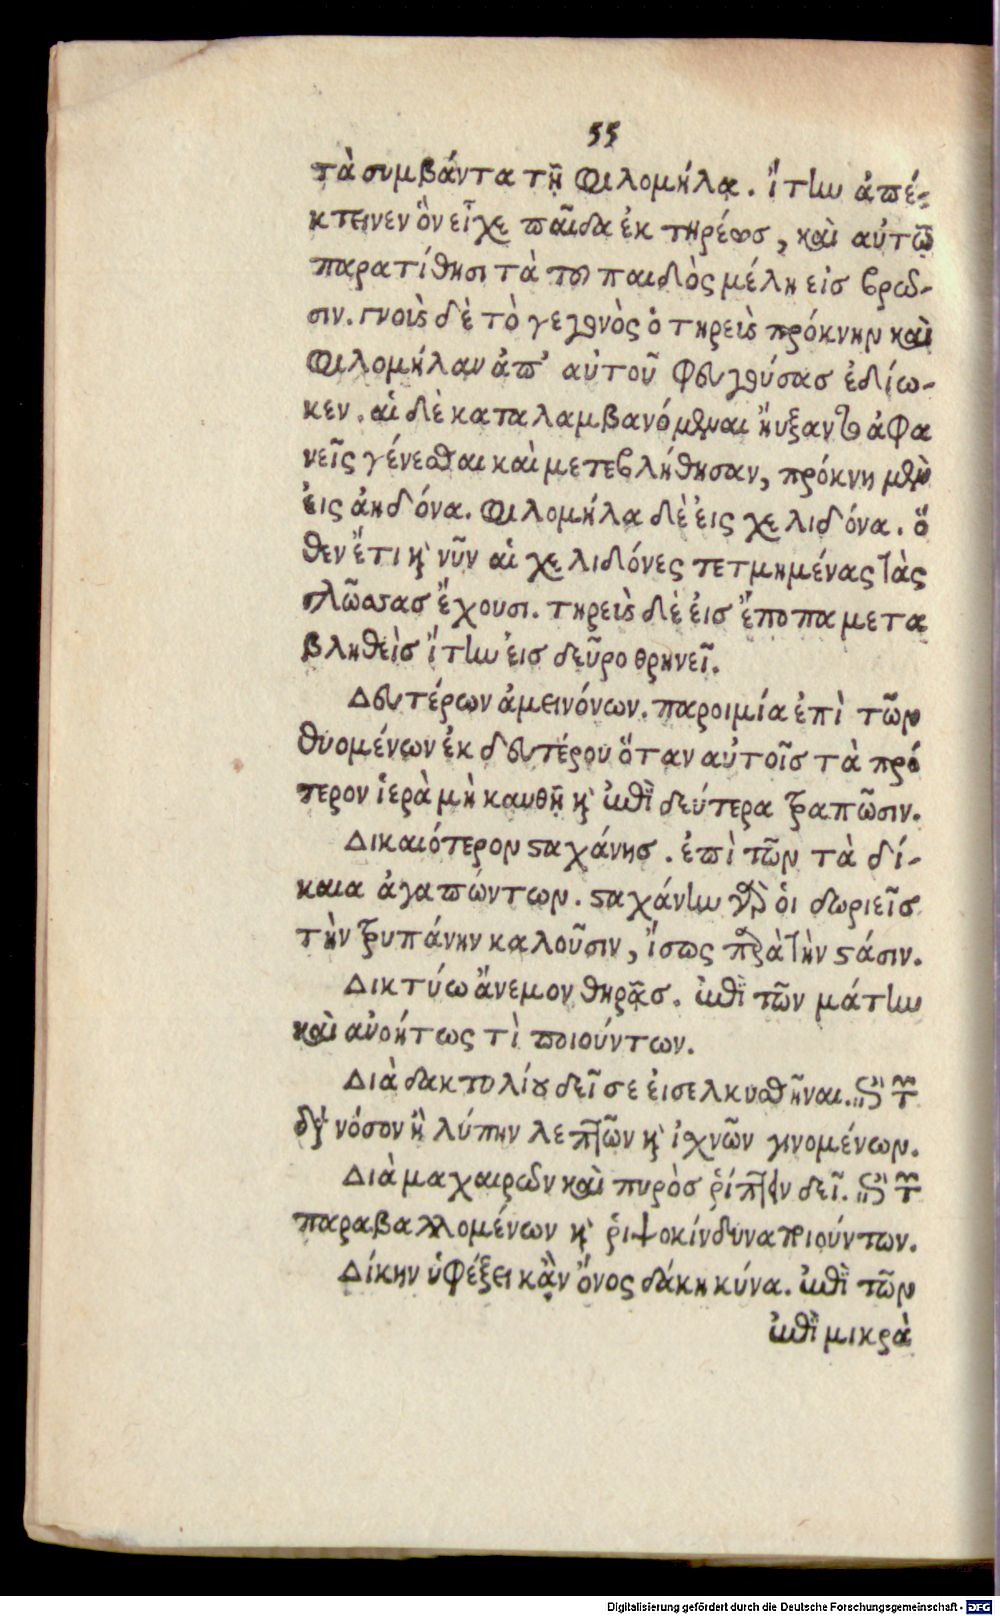 55
τὰ συμβάντα τῇ Φιλομήλα. ἴτυν ἀπέ-
κτεινεν ὃν εἶχε παῖδα ἐκ τηρέως, καὶ αὐτῷ
παρατίθησι τὰ τοῦ παιδὸς μέλη εἰς βρῶ-
σιν. γνοὺς δὲ τὸ γεγονὸς ὁ τηρεὺς πρόκνην καὶ
Φιλομήλαν ἀπ' αὐτοῦ φευγούσας ἐδίω-
κεν. αἱ δὲ καταλαμβανόμεναι ηὔξαντο ἀφα
νεῖς γένεσθαι καὶ μετεβλήθησαν, πρόκνη μὲν
ἐις ἀηδόνα. Φιλομήλα δὲ ἐις χελιδόνα. ὅ
θεν ἔτι κ̀ νῦν αἱ χελιδόνες τετμημένας τὰς
γλῶσσας ἔχουσι. τηρεὺς δὲ ἐις ἔποπα μετα
βληθεὶς ἴτυν ἐις δεῦρο θρηνεῖ.
Δευτέρων ἀμεινόνων. παροιμία ἐπὶ τῶν
θυομένων ἐκ δευτέρου ὅταν αὐτοῖς τὰ πρό
τερον ἱερὰ μὴ καυθῇ κ̀ ἐπὶ δεύτερα τραπῶσιν.
Δικαιότερον ϛαχάνης. ἐπὶ τῶν τὰ δί-
καια ἀγαπώντων. ϛαχάνην γὰρ ὁι δωριεῖς
τὴν τρυπάνην καλοῦσιν, ἴσως παρὰ τὴν ϛάσιν.
Δικτύω ἄνεμον θηρᾷς. ἐπὶ τῶν μάτην
καὶ ἀνοήτως τὶ ποιούντων.
Διὰ δακτυλίου δεῖ σε ἐισελκυσθῆναι.
νόσον ἢ λύπην λεπτῶν κ̀ ἰχνῶν γινομένων.
Διὰ μαχαιρῶν καὶ πυρὸς ῥίπτειν δεῖ.
παραβαλλομένων κ̀ ῥιψοκίνδυνα ποιούντων.
Δίκην ὑφέξει κἂν ὄνος δάκη κύνα. ἐπὶ τῶν
ἐπὶ μικρὰ
Digitalisierung gefördert durch die Deutsche Forschungsgemeinschaft - DFG